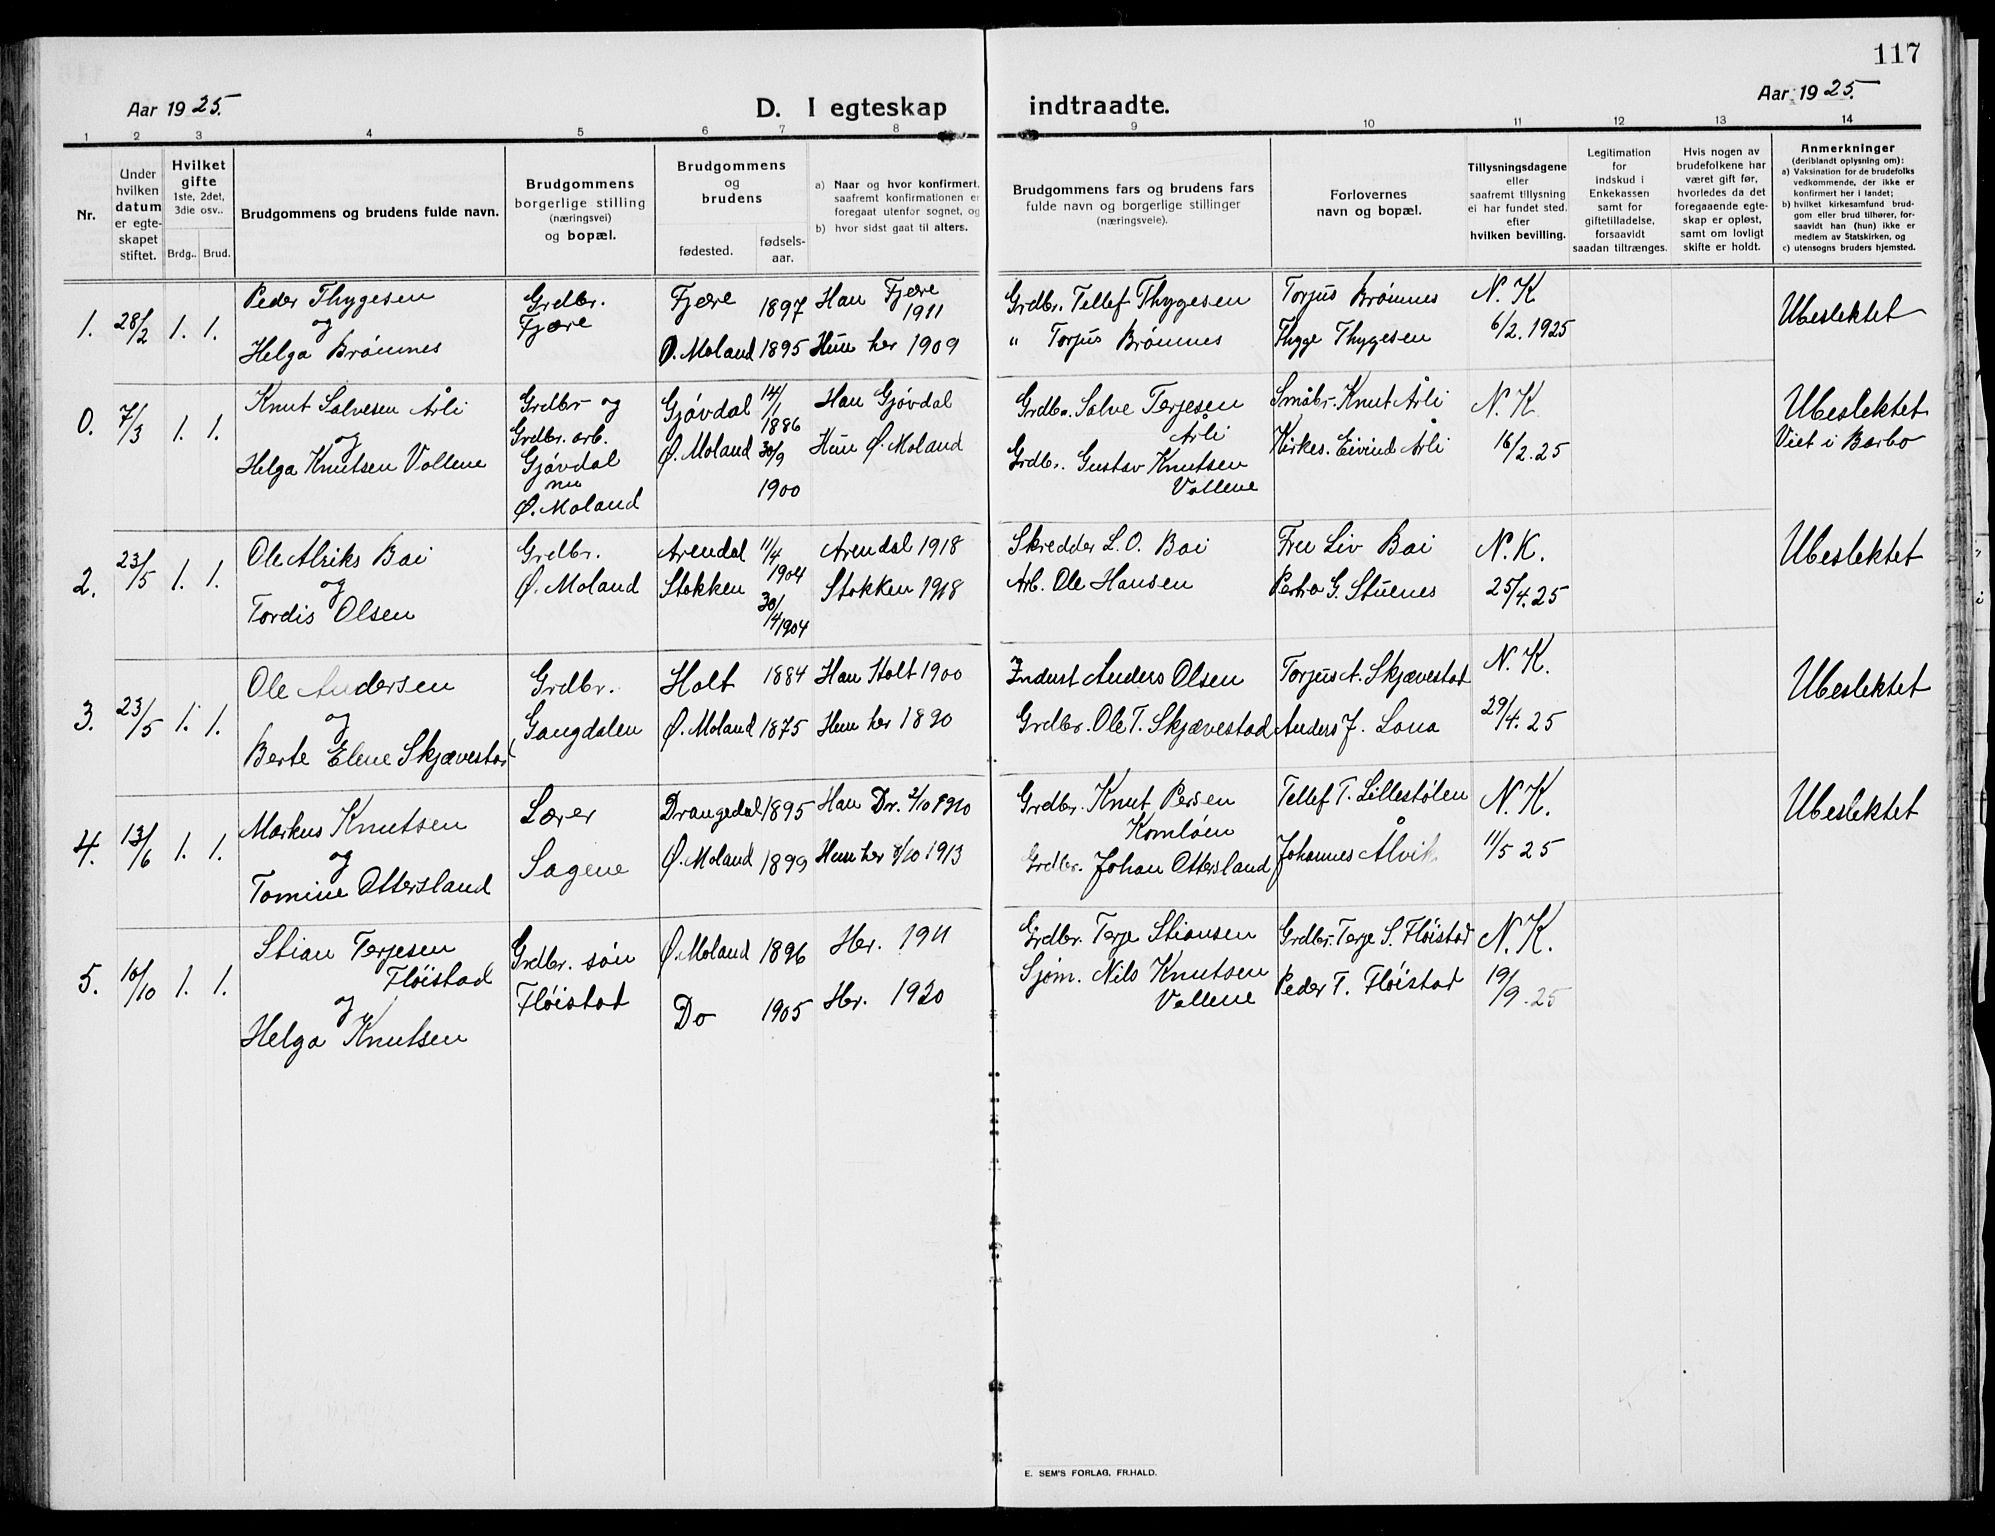 117
Aar 1925.
D. I egteskap indtraadte.
Aar 1925.
1 2 3 4 5 6 7 8 9 10 11 12 13 14
Nr.
Under
hvilken
datum
er egte-
skapet
stiftet.
Hvilket
gifte
1ste, 2det,
3die osv..
Brdg.. Brud.
Brudgommens og brudens fulde navn.
Brudgommens
borgerlige stilling
(næringsvei)
og bopæl.
Brudgommens
og
brudens
fødested.
fødsels-
aar.
a) Naar og hvor konfirmert,
saafremt konfirmationen er
foregaat utenfor sognet, og
b) hvor sidst gaat til alters.
Brudgommens fars og brudens fars
fulde navn og borgerlige stillinger
(næringsveie).
Forlovernes
navn og bopæl.
Tillysningsdagene
eller
saafremt tillysning
ei har fundet sted.
efter
hvilken bevilling.
Legitimation
for
indskud i
Enkekassen
samt for
giftetilladelse,
forsaavidt
saadan tiltrænges.
Hvis nogen av
brudefolkene har
været gift før,
hvorledes da det
foregaaende egte-
skap er opløst,
samt om lovligt
skifte er holdt.
Anmerkninger
(deriblandt oplysning om):
a) Vaksination for de brudefolks
vedkommende, der ikke er
konfirmert her i landet;
b) hvilket kirkesamfund brud-
gom eller brud tilhører, for-
saavidt han (hun) ikke er
medlem av Statskirken, og
c) utensogns bruders hjemsted.
1. 28/2 1. 1.
Peder Thygesen
og
Helga Brömnes
Grdbr.
Fjære
Fjære 1897
Ø. Moland 1895
Han Fjære
1911
Hun her 1909
Grdbr. Tellef Thygesen
" Torjus Brömnes
Torjus Brömnes
Thygge Thygesen
N. K
6/2. 1925
Ubeslektet
0. 7/3 1. 1.
Knut Salvesen Årli
og
Helga Knutsen Vollene
Grdbr og
Grdbr. arb.
Gjövdal
nu
Ø. Moland
Gjövdal 14/1
1886
Ø. Moland 30/9
1900
Han Gjövdal
Hun Ø. Moland
Grdbr. Salve Terjesen
Årli
Grdbr. Gustav Knutsen
Vollene
Småbr. Knut Årli
Kirkes. Eivind Årli
N. K.
16/2. 25
Ubeslektet
Viet i Barbo
2. 23/5 1. 1.
Ole Alriks Boi
og
Tordis Olsen
Grdbr.
Ø. Moland
Arendal 11/4
1904
Stokken
30/4 1904
Arendal 1918
Stokken 1918
Skredder L. O. Boi
Arb. Ole Hansen
Fru Liv Boi
Petra G. Stuenes
N. K.
25/4. 25
Ubeslektet
3. 23/5 1. 1.
Ole Andersen
og
Berte Elene Skjævestad
Grdbr.
Gangdalen
Holt 1884
Ø. Moland 1875
Han Holt 1900
Hun her 1890
Indust Anders Olsen
Grdbr. Ole T. Skjævestad
Torjus A. Skjævestad
Anders J. Lona
N. K.
29/4. 25
Ubeslektet
4. 13/6 1. 1.
Markus Knutsen
og
Tomine Ottersland
Lærer
Sagene
Drangedal 1895
Ø. Moland 1899
Han Dr. 2/10 1910
Hun her 1913
Grdbr. Knut Persen
Komlöen
Grdbr. Johan Ottersland
Tellef T. Lillestölen
Johannes Ålvik
N. K.
11/5 25
Ubeslektet
5. 10/10 1. 1.
Stian Terjesen
Flöistad
og
Helga Knutsen
Grdbr. sön
Flöistad
Ø. Moland 1896
Do 1905
Her. 1911
Her. 1920
Grdbr. Terje Stiansen
Sjöm. Nils Knutsen
Vollene
Grdbr. Terje S. Flöistad
Peder T. Flöistad
N. K.
19/9. 25
E. SEM'S FORLAG, FR.HALD.